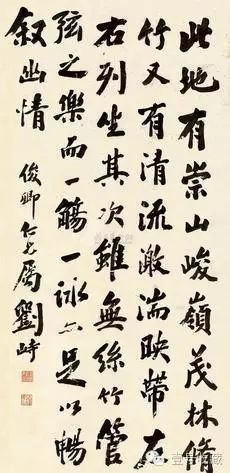 此地有崇山峻嶺茂林脩
竹又有清流激湍映帶左
右列坐其次雖無絲竹管
弦之樂而一觴一詠亦足以暢
叙幽情
俊卿仁兄屬 劉峙